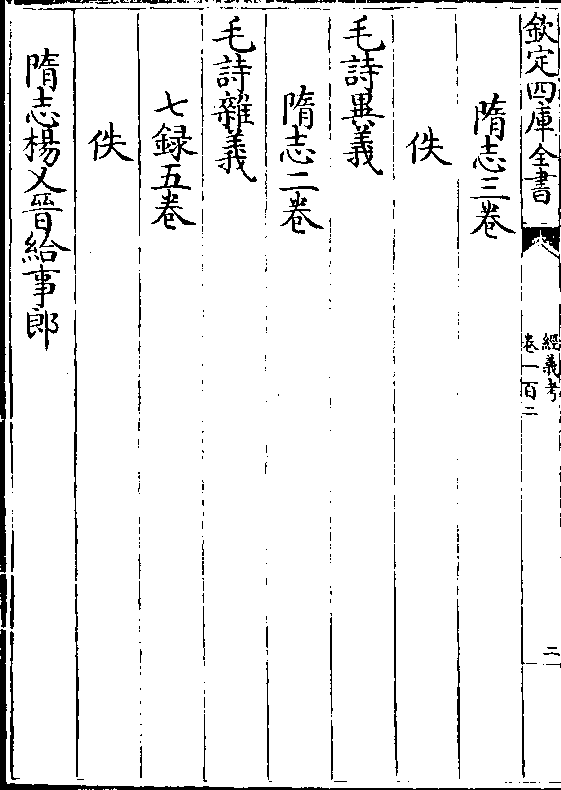 欽定四庫全書
經義考
卷一百二
二
隋志三卷
佚
毛詩異義
隋志二卷
毛詩雜義
七録五卷
佚
隋志楊乂晉給事郎